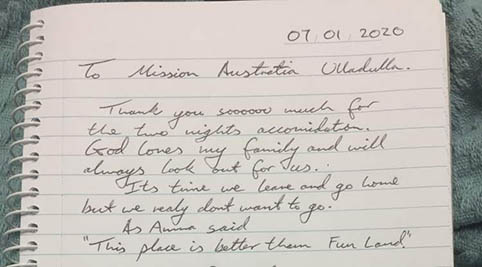 07/01/2020
To Mission Australia Ulladulla.
Thank you soooooo much for
the two nights accomidation.
God loves my family and will
always look out for us.
Its time we leave and go home
but we realy dont want to go.
As Amma said
"This place is better them Fun Land."